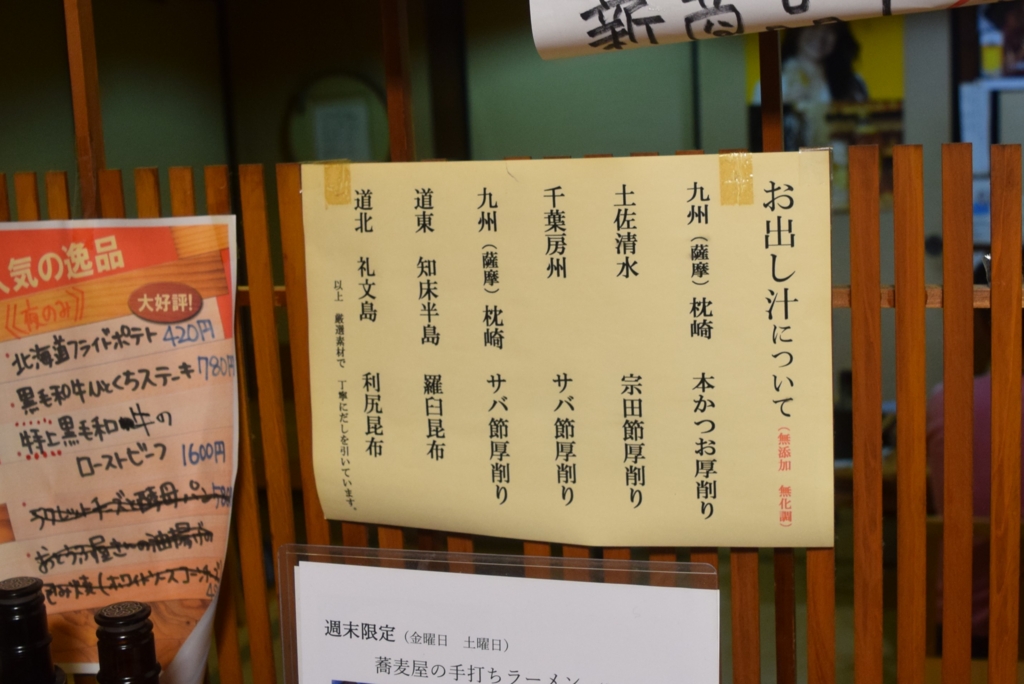 お出し汁について（無添加 無化調）
九州（薩摩）枕崎 本かつお厚削り
土佐清水 宗田節厚削り
千葉房州 サバ節厚削り
九州（薩摩）枕崎 サバ節厚削り
道東 知床半島 羅臼昆布
道北 礼文島 利尻昆布
以上 厳選素材で 丁寧にだしを引いています。
気の逸品
大好評!
《夜のみ》
・北海道フライドポテト 420円
・黒毛和牛ひとくちステーキ 780円
・特上黒毛和牛の
ローストビーフ 1600円
週末限定（金曜日 土曜日）
蕎麦屋の手打ちラーメン